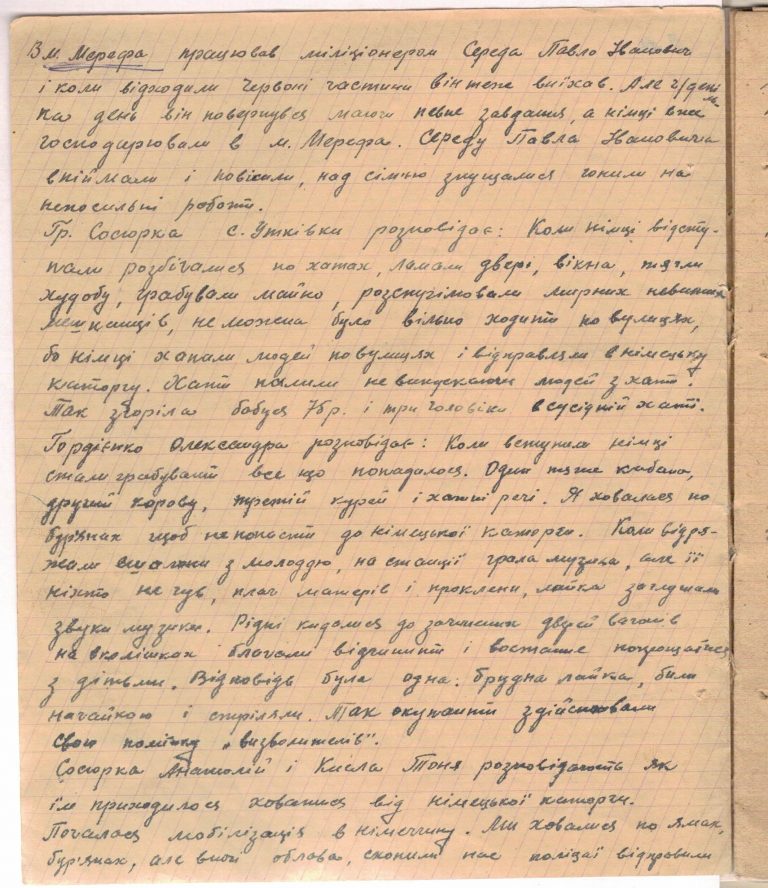 В м. Мерефа працював міліціонером Середа Павло Іванович
і коли відходили червоні частини він теж виїхав. Але
на день він повернувся маючи певне завдання, а німці вже
господарювали в м. Мерефа. Середу Павла Івановича
впіймали і повісили, над сім'ю знущалися гонили на
непосильні роботи.
Гр. Сосюрка с. Утківки розповідає: Коли німці відсту-
пали розбігалися по хатах, ламали двері, вікна, тягли
худобу, грабували майно, мирних
мешканців, не можна було вільно ходити по вулицях,
бо німці хапали людей по вулицях і відправляли в німецьку
каторгу. Хати палили не випускаючи людей з хати.
Так згоріла бабуся 75 р. і три чоловіки в сусідній хаті.
Гордієнко Олександра розповідає: Коли вступили німці
стали грабувати все що попадалося. Один тягне кабана,
другий корову, третій курей і хатні речі. Я ховалася по
бур'янах щоб не попасти до німецької каторги. Коли відря-
жали ешалони з молоддю, на станції грала музика, але її
ніхто не чув, плач матерів і проклени, лайка заглушали
звуки музики. Рідні кидалися до зачинених дверей вагонів
на вколішках благали відчинити і востанне попрощатися
з дітьми. Відповідь була одна: брудна лайка, били
нагайкою і стріляли. Так окупанти здійснювали
свою політику „визволителів".
Сосюрка Анатолій і Кисла Тоня розповідають як
їм приходилося ховатися від німецької каторги.
Почалася мобілізація в німеччину. Ми ховалися по ямах,
бур'янах, але вночі облава, схопили нас поліцаї відправили